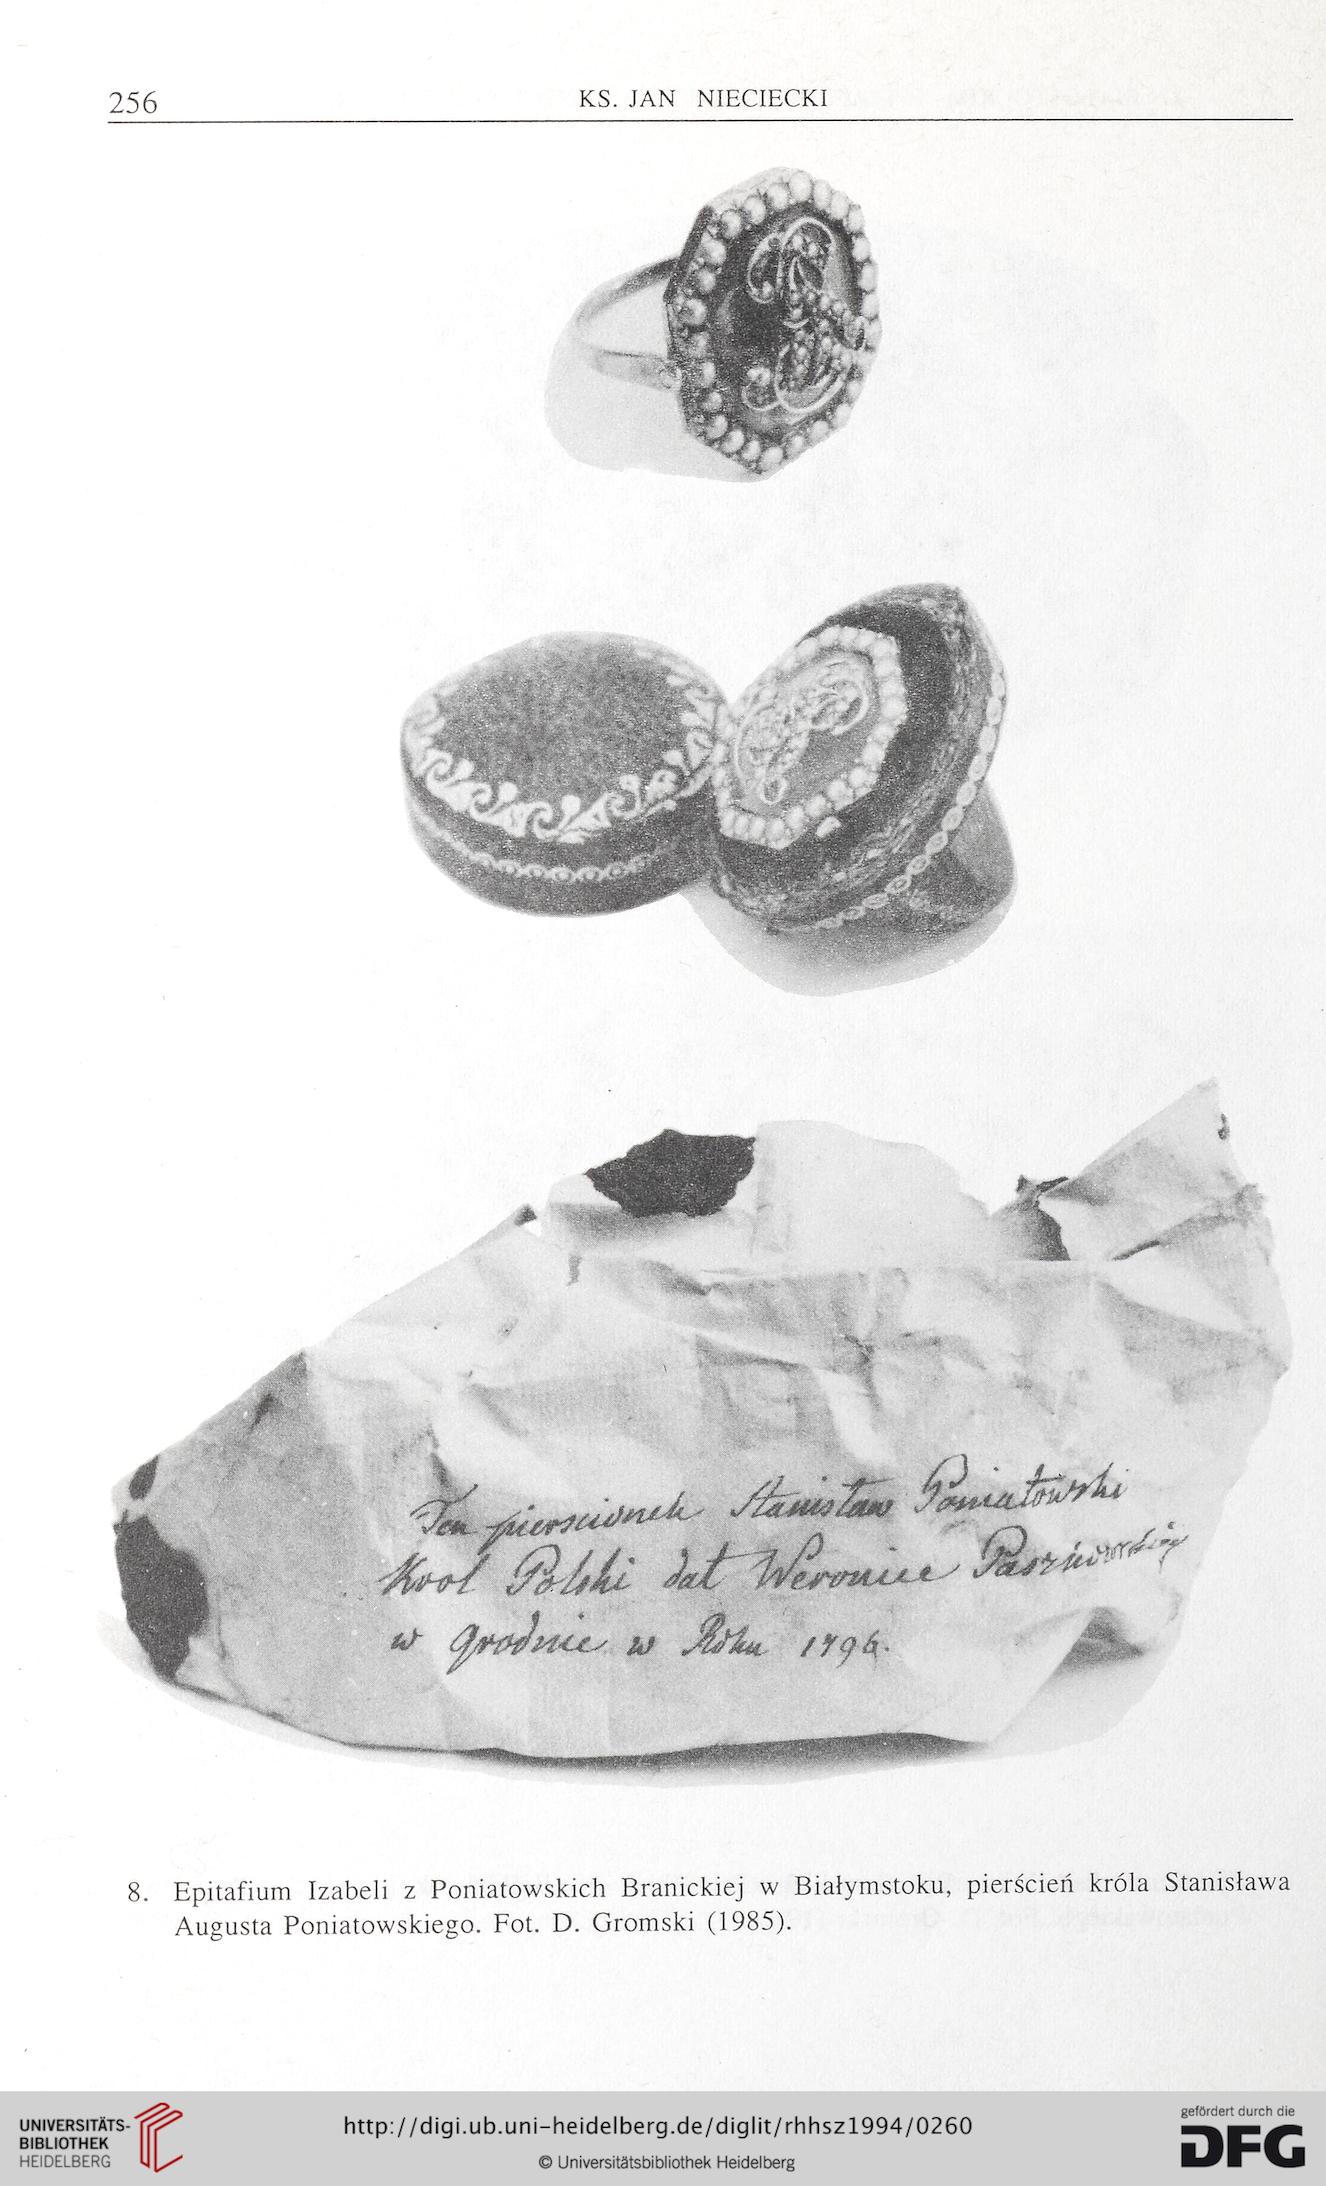 256
KS. JAN NIECIECKI
Ten pierscionek Stanisław Poniatowski
Krol Polski dał Weronice
w Grodnie w Roku 1796.
8. Epitafium Izabeli z Poniatowskich Branickiej w Białymstoku, pierścień króla Stanisława
Augusta Poniatowskiego. Fot. D. Gromski (1985).
UNIVERSITÄTS-
BIBLIOTHEK
HEIDELBERG
http://digi.ub.uni-heidelberg.de/diglit/rhhsz1994/0260
© Universitätsbibliothek Heidelberg
gefördert durch die
DFG